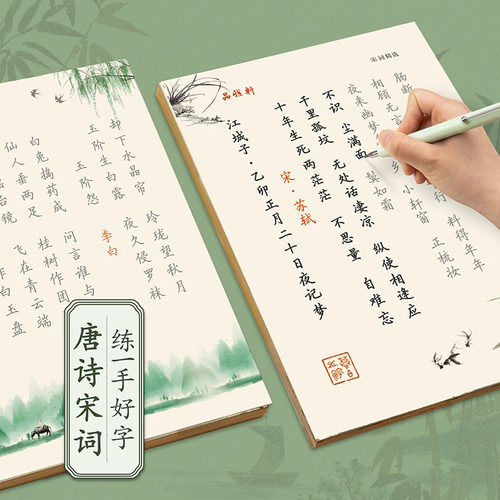 却下水晶帘
玲珑望秋月
玉阶生白露
夜久侵罗袜
玉阶怨
李白
白兔捣药成
问言谁与
仙人垂两足
桂树作团
台镜
飞在青云端
作白玉盘
宋词精选
品雅轩
江城子·乙卯正月二十日夜记梦
宋·苏轼
十年生死两茫茫
不思量
自难忘
千里孤坟
无处话凄凉
纵使相逢应
不识
尘满面
鬓如霜
夜来幽梦
小轩窗
正梳妆
相顾无言
料得年年
肠断
练一手好字
唐诗宋词